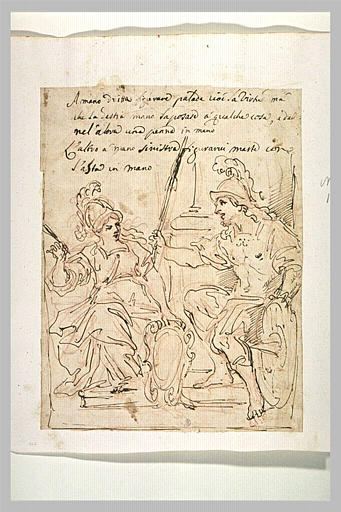 A mano dritta figurare palade cioè la Virtù ma
che la destra mano la posase a qualche cosa, e da
nel'altra una penna in mano
L'altro a mano sinistra figurarvi marte con
l'asta in mano